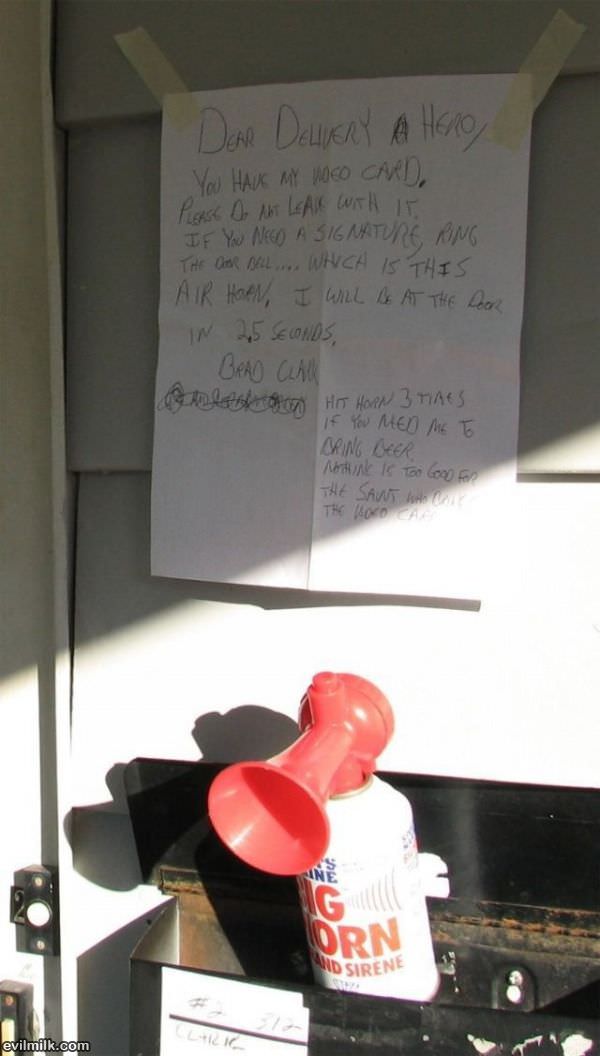 DEAR DELIVERY HERO,
YOU HAVE MY VIDEO CARD.
PLEASE DO NOT LEAVE WITH IT.
IF YOU NEED A SIGNATURE, RING
THE DOOR BELL.... WHICH IS THIS
AIR HORN. I WILL BE AT THE DOOR
IN 2.5 SECONDS.
BRAD CLARK
HIT HORN 3 TIMES
IF YOU NEED ME TO
BRING BEER.
NOTHING IS TOO GOOD FOR
THE SAINT WHO
THE VIDEO CARD
INE
IG
ORN
AND SIRENE
2
#2 312
evilmilk.com